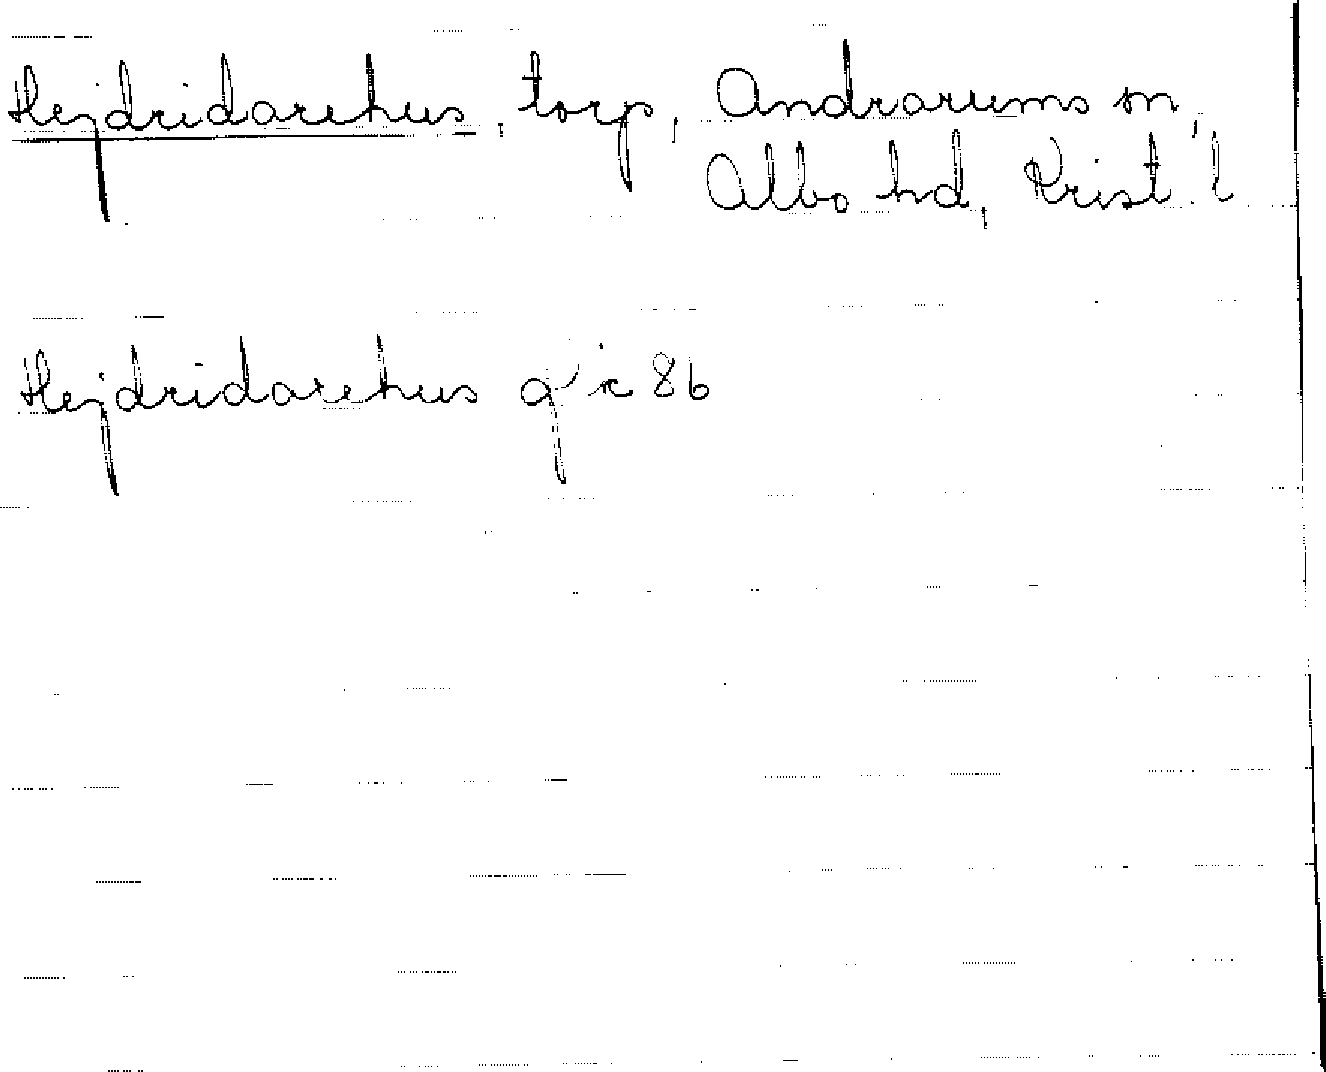 Hejdridarehus, torp, Andrarums sn,
Albo hd, Krist. l
Hejdridarehus 86